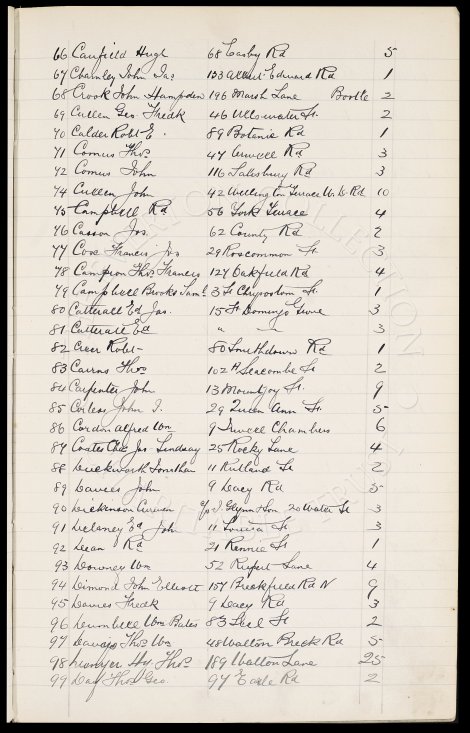 66 Canfield Hugh 68 Easby Rd 5
67 Charnley John Jas 133 Albert Edward Rd 1
68 Crook John Hampden 196 Marsh Lane Bootle 2
69 Cullen Geo. Fredk 46 Ullswater St. 2
70 Calder Robt E. 89 Botanic Rd 1
71 Comus Thos 47 Curwell Rd 3
72 Comus John 116 Salisbury Rd 3
74 Cullen John 42 Wellington Terrace W. D. Rd 10
75 Campbell Rd 56 York Terrace 4
76 Casson Jos. 62 County Rd 2
77 Cox Francis Jos 29 Roscommon St. 3
78 Campion Thos. Francis 127 Oakfield Rd 4
79 Campbell Brooks Saml 3 St Chrysostom St. 1
80 Catterall Ed Jas. 15 St Domingo Grove 3
81 Catterall Ed " — 3
82 Creer Robt 80 Smithdown Rd 1
83 Cairns Thos 102A Seacombe St 2
84 Carpenter John 13 Mountjoy St. 9
85 Corless John J. 29 Queen Ann St. 5
86 Cordon Alfred Wm 9 Irwell Chambers 6
87 Coates Chas Jos Lindsay 25 Rocky Lane 4
88 Duckworth Jonathan 11 Rutland St 2
89 Davies John 9 Dacy Rd 5
90 Dickinson Curwen c/o J. Glynn & Son 20 Water St 3
91 Delaney Ed John 11 Louisa St 3
92 Dean Rd 21 Rennie St 1
93 Downey Wm 52 Rupert Lane 4
94 Dimond John Elliott 157 Breckfield Rd N 9
95 Davies Fredk 9 Dacy Rd 3
96 Dumbell Wm Bates 83 Teel St 2
97 Davies Thos Wm 48 Walton Breck Rd 5
98 Dwyer Hy Thos. 189 Walton Lane 25
99 Day Thos Geo 97 Earle Rd 2